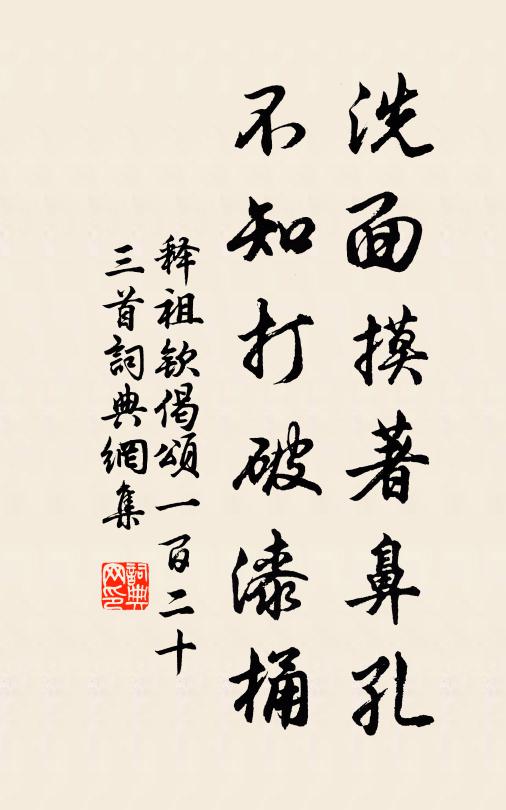 洗面摸著鼻孔
不知打破漆桶
释祖钦偈頌一百二十
三首詞典網集
詞典
网印